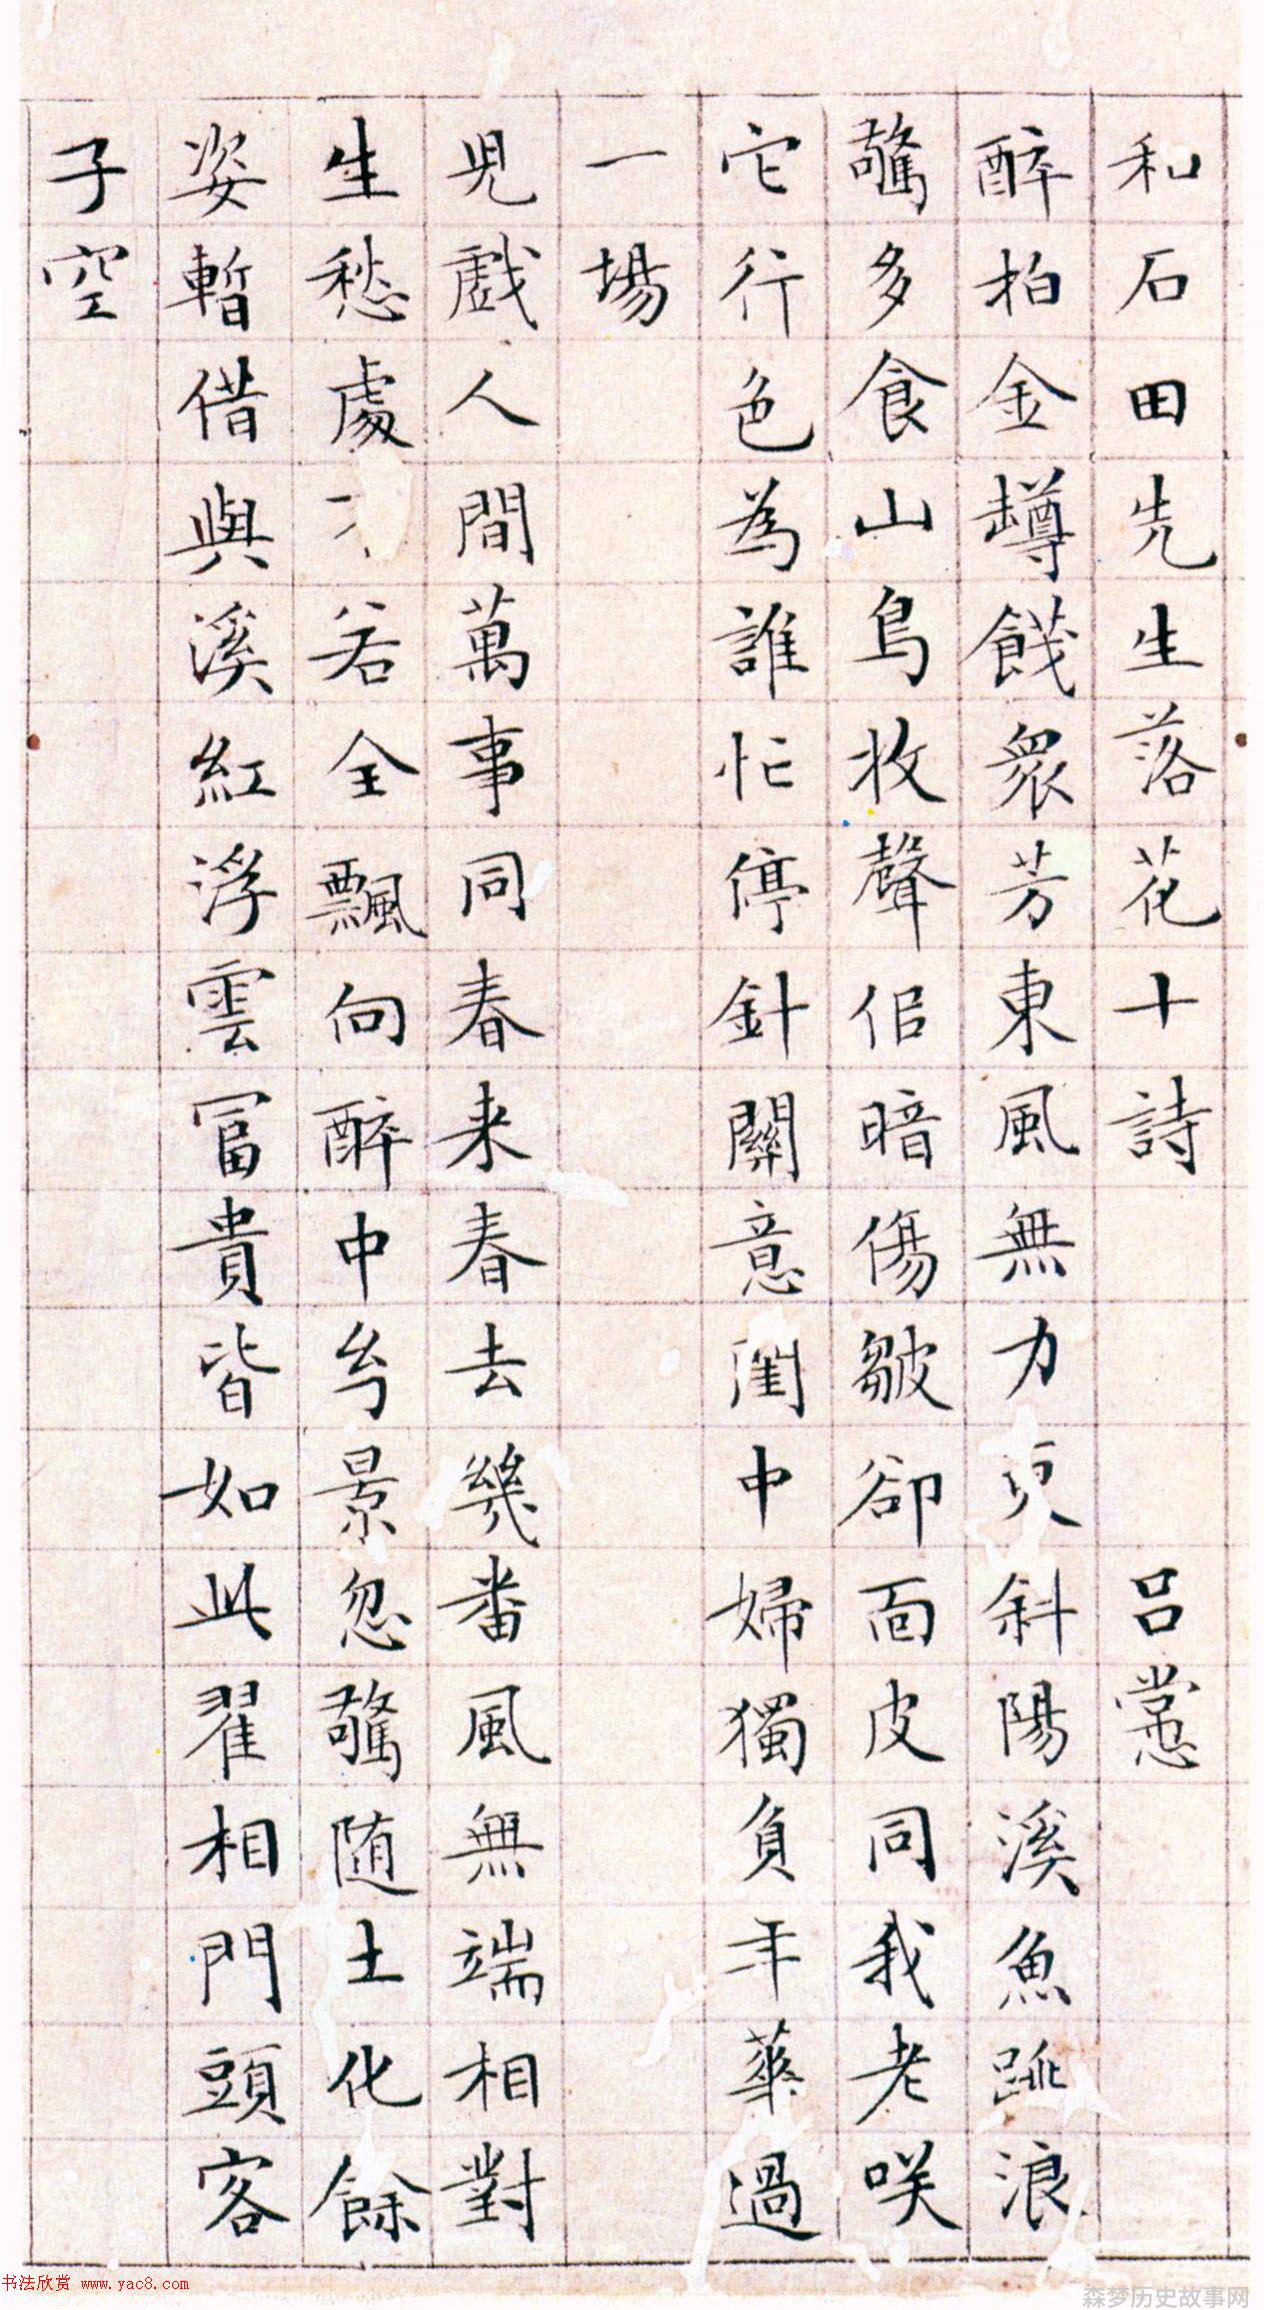 和石田先生落花十詩 呂㦂
醉拍金罇餞衆芳東風無力更斜陽溪魚跳浪
驚多食山鳥收聲侣暗傷皺卻面皮同我老咲
它行色為誰忙停針關意閨中婦獨負年華過
一場
児戲人間萬事同春来春去幾番風無端相對
生愁處不若全飄向醉中兮景忽驚随土化餘
姿暫借與溪紅浮雲冨貴皆如此翟相門頭客
子空
书法欣赏 www.yac8.com
森梦历史故事网